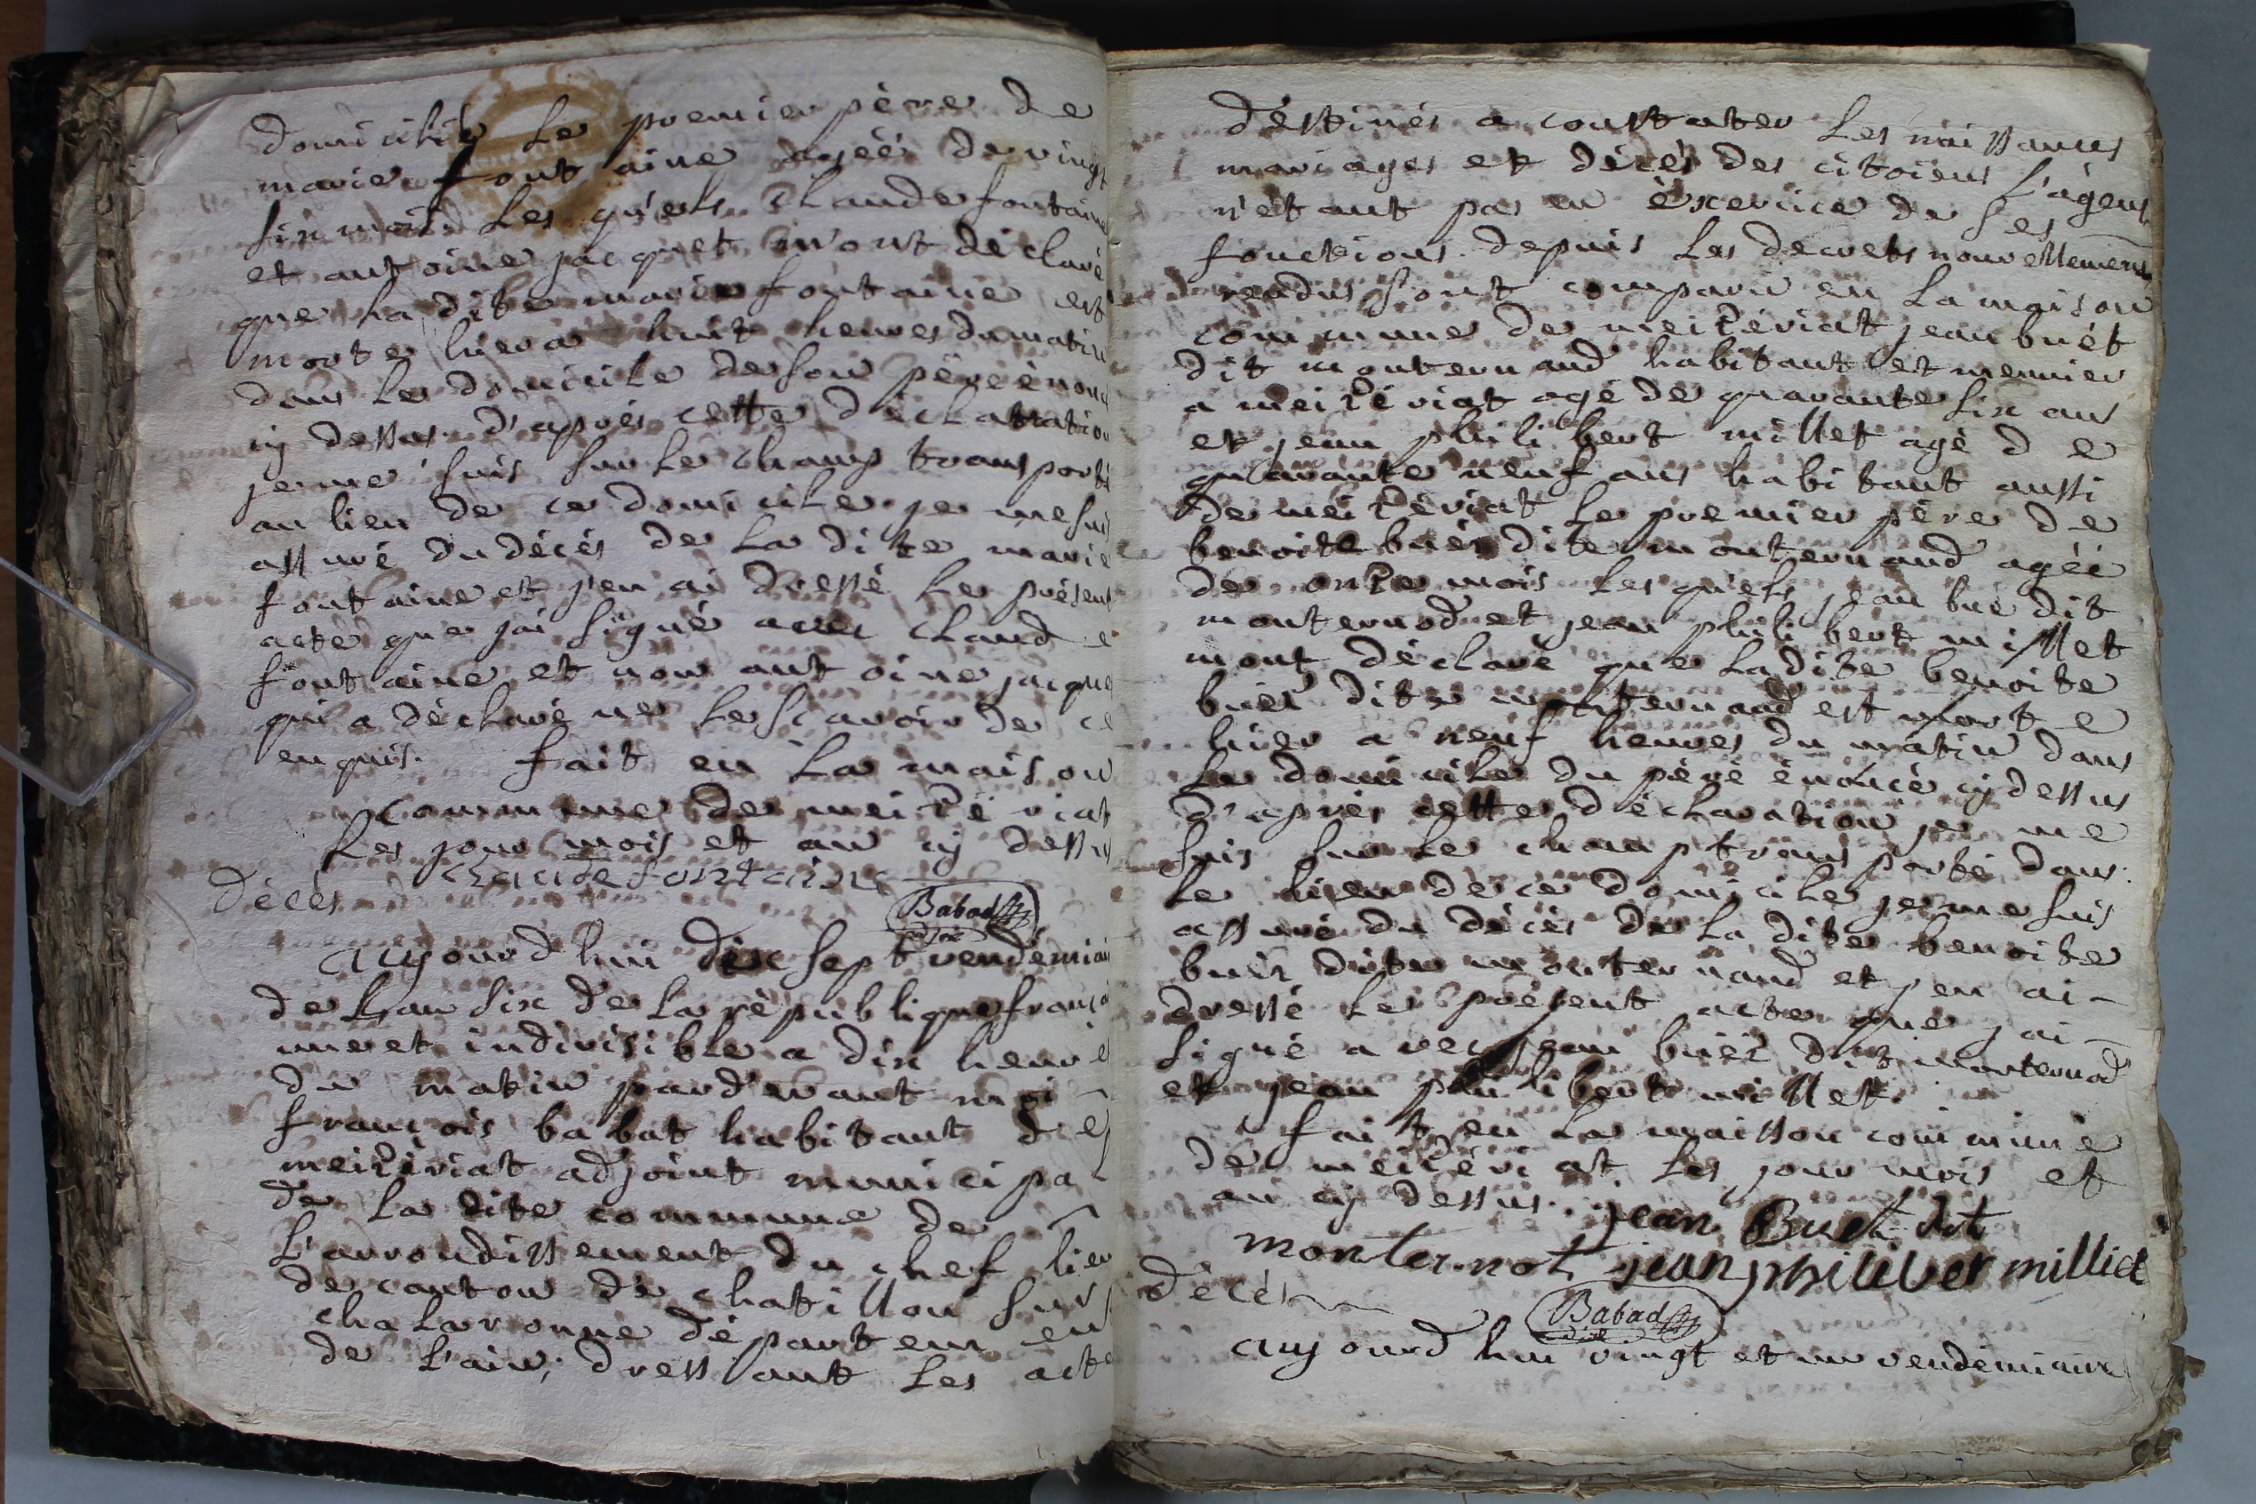 domicilié le premier père de
marie fontaine agéé de vingt
six mois les quels Claude fontaine
et antoine jacquet m'ont déclaré
que la dite marie fontaine est
morte hier a huit heures du matin
dans le domicile de son père énoncé
cy dessus d'après cette déclaration
je me suis sur le champ transporté
au lieu de ce domicile je me suis
assuré du décés de la dite marie
fontaine et j'en ai dressé le présent
acte que jai signé avec Claude
fontaine et non antoine jacque
qui a déclaré ne le scavoir de ce
enquis. fait en la maison
commune de meizériat
les jour mois et an cy dessus
claude fontaine
Décés
Babad
adjoint
aujourdhui dix sept vendémiair
de l'an six de la république francai
une et indivisible a dix heures
du matin pardevant moi
francois babat habitant de
meizériat adjoint municipal
de la dite commune de
l'arrondissement du chef lieu
de canton de chatillon sur
chalaronne département
de l'ain, dressant les acte
déstinés a constater les naissances
mariages et décés des citoiens l'ágent
n'étant pas en éxercice de ses
fonctions depuis les decrets nouvellement
rendus sont comparu en la maison
commune de meizériat jean buét
dit monternand habitant et meunier
a meizériat agé de quarante six ans
et jean philibert millet agé de
quarante neuf ans habitant aussi
de meizériat le premier pére de
benoite buér dite monternand agéé
de onze mois les quels jean bué dit
monternod et jean philibert millet
mont déclaré que ladite benoite
buér dite monternand est morte
hier a neuf heures du matin dans
le domicile du pére énoncé cy dessus
d'aprés cette déclaration je me
suis sur le champ transporté dans
le lieu de ce domicile je me suis
assuré du décés de la dite benoite
buér dite monternand et jen ai
dressé le présent acte que jai
signé avec jean buér dit monternod
et jean philibert millet.
fait en la maisson commune
de meizériat les jour mois et
an cy dessus.
jean Buet dit
monternot jean philiber milliet
Décés
Babad
aujourdhui vingt et un vendémiaire